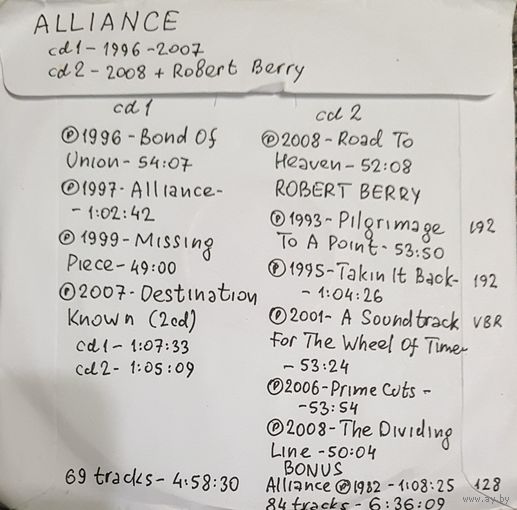 ALLIANCE
cd1-1996-2007
cd2-2008 + Robert Berry
cd1
℗1996-Bond Of
Union-54:07
℗1997-Alliance-
-1:02:42
℗1999-Missing
Piece-49:00
℗2007-Destination
Known (2cd)
cd1-1:07:33
cd2-1:05:09
69 tracks-4:58:30
cd2
℗2008-Road To
Heaven-52:08
ROBERT BERRY
℗1993-Pilgrimage 192
To A Point-53:50
℗1995-Takin It Back- 192
-1:04:26
℗2001-A Soundtrack VBR
For The Wheel Of Time-
-53:24
℗2006-Prime Cuts-
-53:54
℗2008-The Dividing
Line-50:04
BONUS
Alliance ℗1982-1:08:25 128
84 tracks-6:36:09
www.ay.by